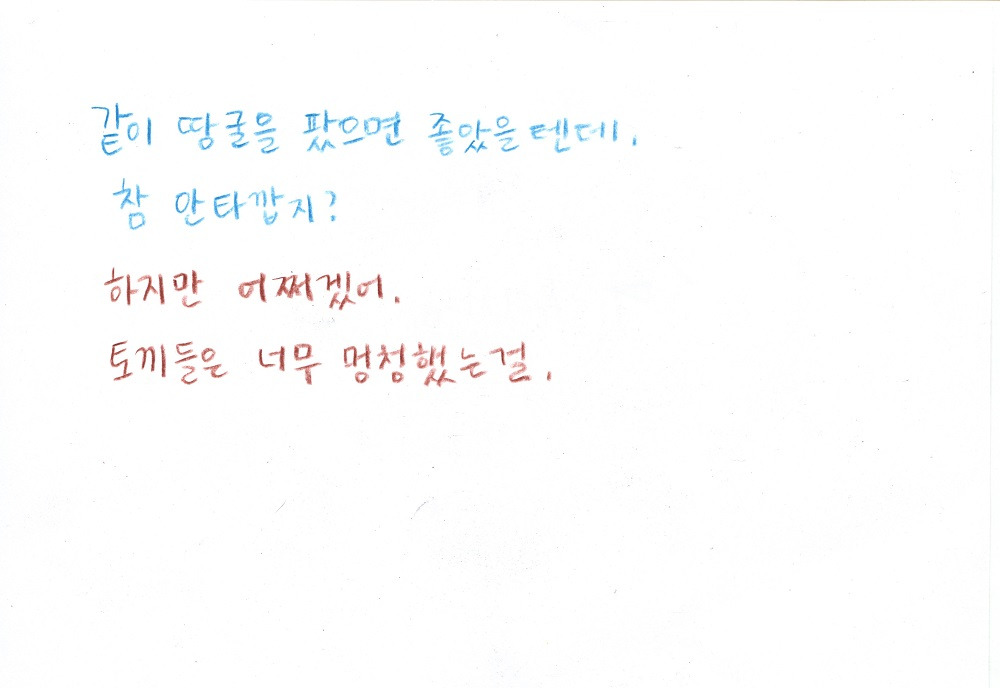 같이 땅굴을 팠으면 좋았을텐데.
참 안타깝지?
하지만 어쩌겠어.
토끼들은 너무 멍청했는걸.